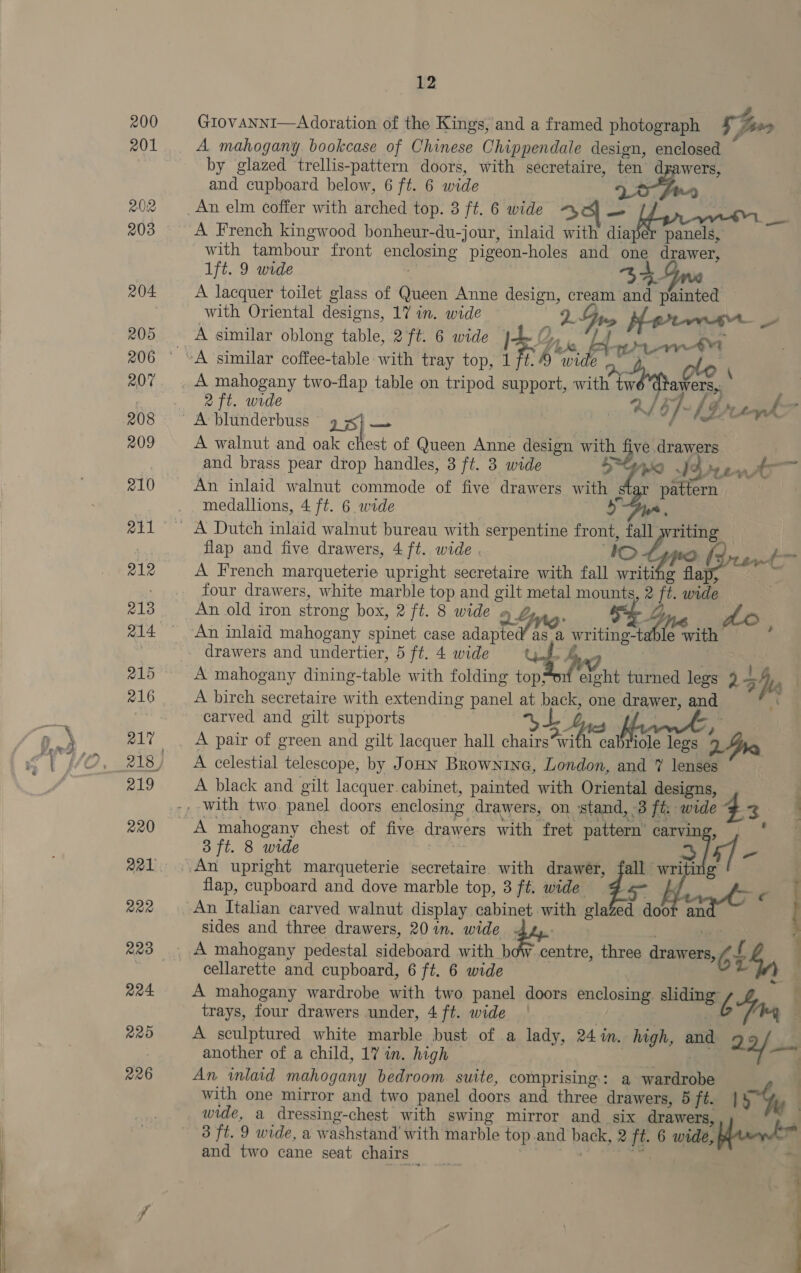 12
200 GIOVANNI—Adoration of the Kings, and a framed photograph 5 gns
201 A mahogany bookcase of Chinese Chippendale design, enclosed
by glazed trellis-pattern doors, with secretaire, ten drawers,
and cupboard below, 6 ft. 6 wide 20 gns
202 An elm coffer with arched top. 3 ft. 6 wide
203 A French kingwood bonheur-du-jour, inlaid with diaper panels,
with tambour front enclosing pigeon-holes and one drawer,
1ft. 9 wide 34 gns
204 A lacquer toilet glass of Queen Anne design, cream and painted
with Oriental designs, 17 in. wide 2 gns
205 A similar oblong table, 2 ft. 6 wide
206 A similar coffee-table with tray top, 1 ft. 9 wide
207 A mahogany two-flap table on tripod support, with two drawers,
2 ft. wide
208 A blunderbuss 25/—
209 A walnut and oak chest of Queen Anne design with five drawers
and brass pear drop handles, 3 ft. 3 wide 5 gns
210 An inlaid walnut commode of five drawers with star pattern
medallions, 4 ft. 6 wide 5 gns
211 A Dutch inlaid walnut bureau with serpentine front, fall writing
flap and five drawers, 4 ft. wide 10 gns
212 A French marqueterie upright secretaire with fall writing flap,
four drawers, white marble top and gilt metal mounts, 2 ft. wide
213 An old iron strong box, 2 ft. 8 wide do
214 An inlaid mahogany spinet case adapted as a writing-table with
drawers and undertier, 5 ft. 4 wide
215 A mahogany dining-table with folding top, on eight turned legs
216 A birch secretaire with extending panel at back, one drawer, and
carved and gilt supports
217 A pair of green and gilt lacquer hall chairs with cabriole legs 2 gns
218 A celestial telescope, by JOHN BROWNING, London, and 7 lenses
219 A black and gilt lacquer cabinet, painted with Oriental designs,
with two panel doors enclosing drawers, on stand, 3 ft. wide
220 A mahogany chest of five drawers with fret pattern carving,
3 ft. 8 wide
221 An upright marqueterie secretaire with drawer, fall writing
flap, cupboard and dove marble top, 3 ft. wide
222 An Italian carved walnut display cabinet with glazed door and
sides and three drawers, 20 in. wide
223 A mahogany pedestal sideboard with bow centre, three drawers,
cellarette and cupboard, 6 ft. 6 wide
224 A mahogany wardrobe with two panel doors enclosing sliding
trays, four drawers under, 4 ft. wide 6 gns
225 A sculptured white marble bust of a lady, 24 in. high, and
another of a child, 17 in. high 22/—
226 An inlaid mahogany bedroom suite, comprising: a wardrobe
with one mirror and two panel doors and three drawers, 5 ft.
wide, a dressing-chest with swing mirror and six drawers,
3 ft. 9 wide, a washstand with marble top and back, 2 ft. 6 wide,
and two cane seat chairs